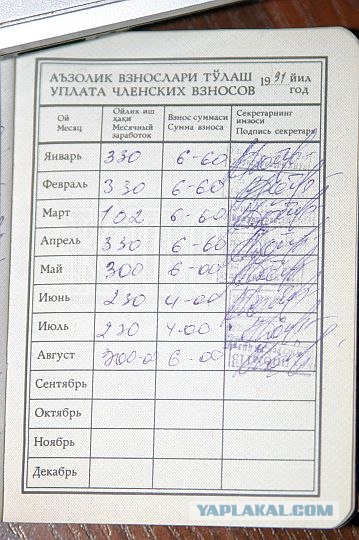 АЪЗОЛИК ВЗНОСЛАРИ ТЎЛАШ 1991 ЙИЛ
УПЛАТА ЧЛЕНСКИХ ВЗНОСОВ ГОД
Ой Месяц
Ойлик иш ҳақи Месячный заработок
Взнос суммаси Сумма взноса
Секретарнинг имзоси Подпись секретаря
Январь 330 6-60
Февраль 330 6-60
Март 102 6-60
Апрель 330 6-60
Май 300 6-00
Июнь 230 4-00
Июль 230 4-00
Август 300-00 6-00
Сентябрь
Октябрь
Ноябрь
Декабрь
YAPLAKAL.COM